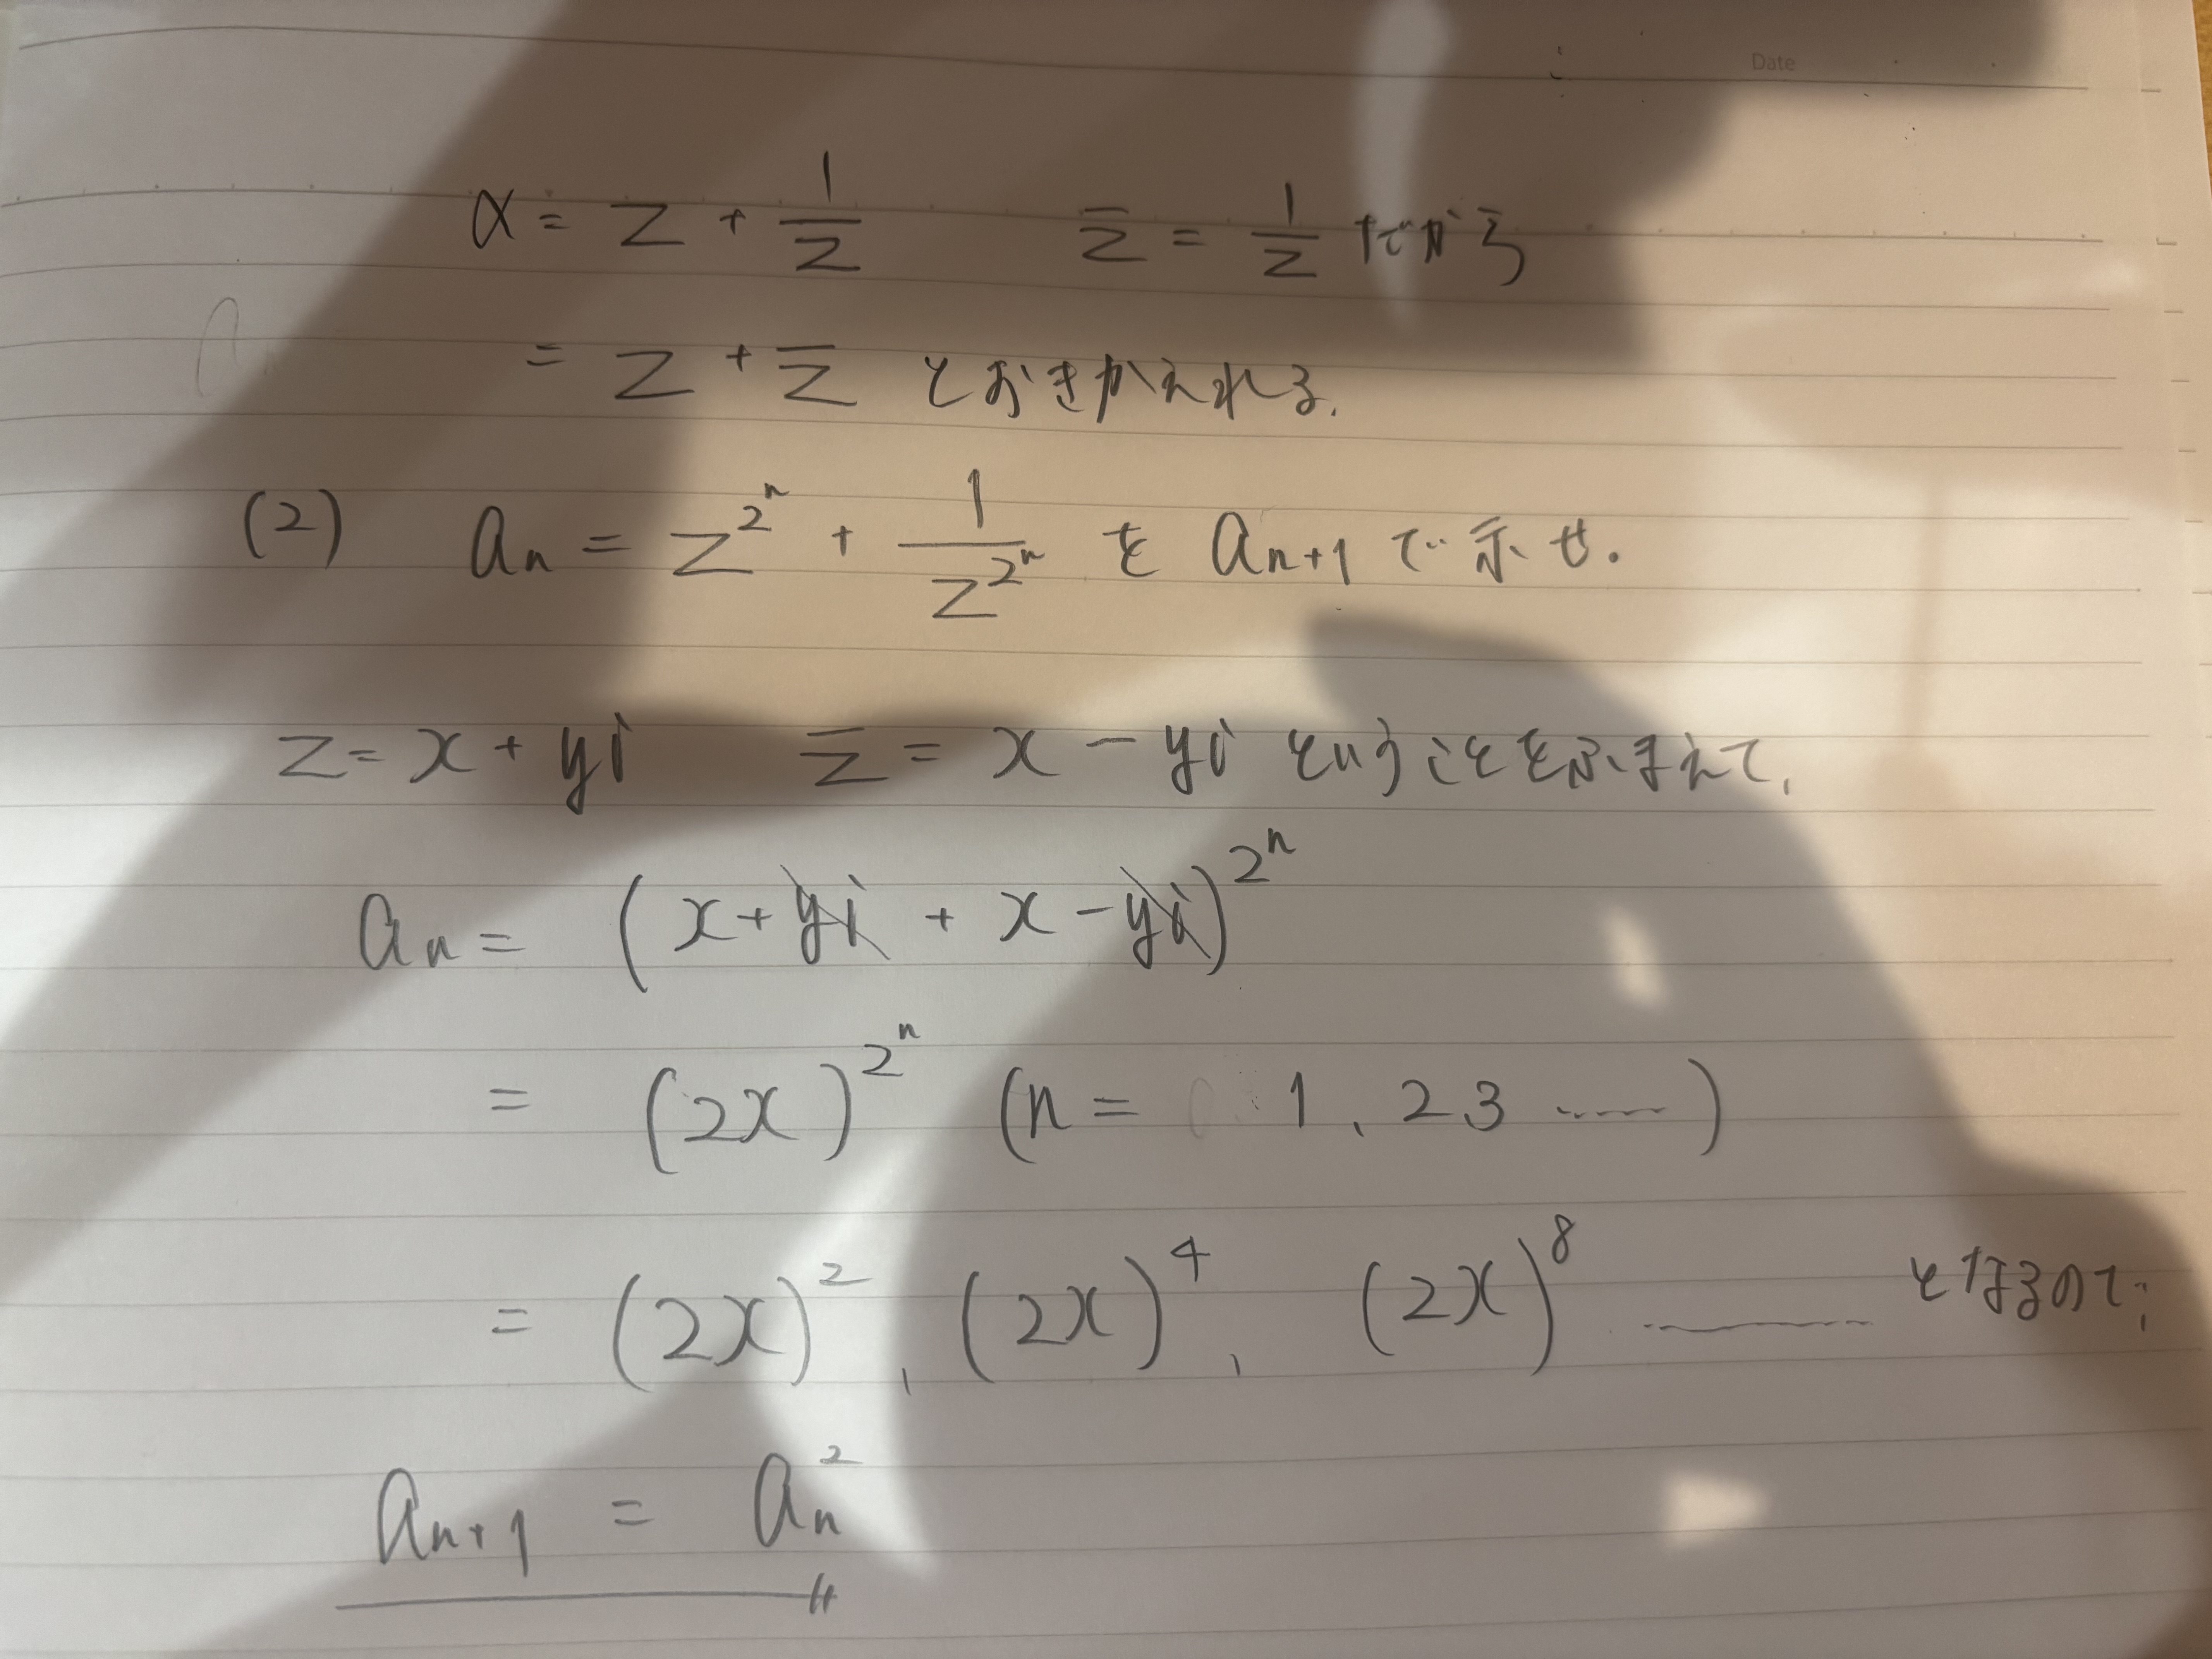 Date
α = z + 1/z  z̄ = 1/z だから
= z + z̄ とおきかえれる.
(2) aₙ = z^{2^n} + 1/z^{2^n} を aₙ₊₁ で示せ.
z = x + yi  z̄ = x - yi ということをふまえて,
aₙ = (x + yi + x - yi)^{2^n}
= (2x)^{2^n} (n = 1, 2, 3 ......)
= (2x)^2, (2x)^4, (2x)^8 ............ となるので,
aₙ₊₁ = aₙ^2